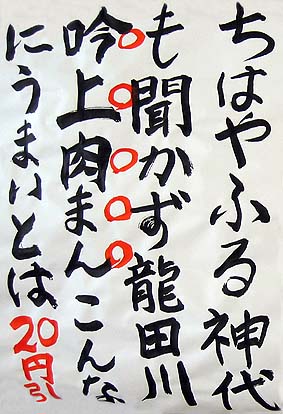 ちはやふる神代
も聞かず龍田川
吟上肉まんこんな
にうまいとは20円引